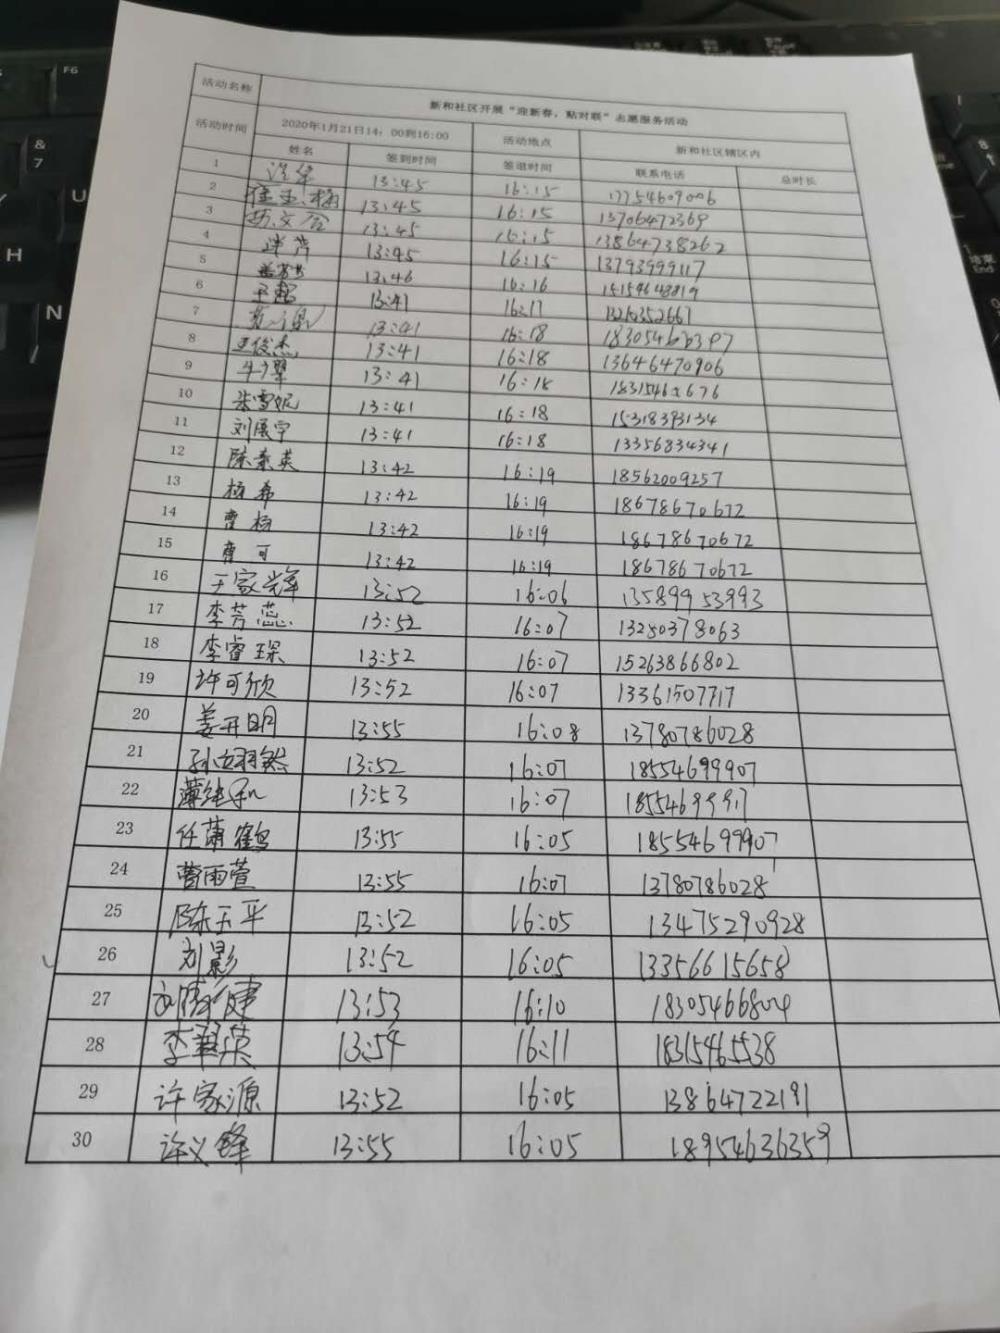 活动名称 新和社区开展“迎新春，贴对联”志愿服务活动
活动时间 2020年1月21日14：00到16:00 活动地点 新和社区辖区内
姓名 签到时间 签退时间 联系电话 总时长
1 13:45 16:15 17754609006
2 13:45 16:15 13706472369
3 13:45 16:15 13864738262
4 13:45 16:15 13793999117
5 13:46 16:16 15154643819
6 13:41 16:17
7 13:41 16:18
8 王俊杰 13:41 16:18 13646470906
9 13:41 16:18
10 朱雪妮 13:41 16:18 15318393134
11 刘展宇 13:41 16:18 13356834341
12 陈素英 13:42 16:19 18562009257
13 杨希 13:42 16:19 18678670672
14 曹杨 13:42 16:19 18678670672
15 曹可 13:42 16:19 18678670672
16 王家辉 13:52 16:06 13589953993
17 李芳蕊 13:52 16:07 13280378063
18 李睿琛 13:52 16:07 15263866802
19 许可欣 13:52 16:07 13361507717
20 姜开明 13:55 16:08 13780786028
21 13:52 16:07 18554699907
22 13:53 16:07
23 任萧鹤 13:55 16:05 18554699907
24 曹雨萱 13:55 16:07 13780786028
25 陈玉平 13:52 16:05 13475290928
26 刘影 13:52 16:05 13356615658
27 13:53 16:10 18305466804
28 13:54 16:11 18315465538
29 许家源 13:52 16:05 13864722191
30 许义锋 13:55 16:05 18954636359
F6
&
7
H
End